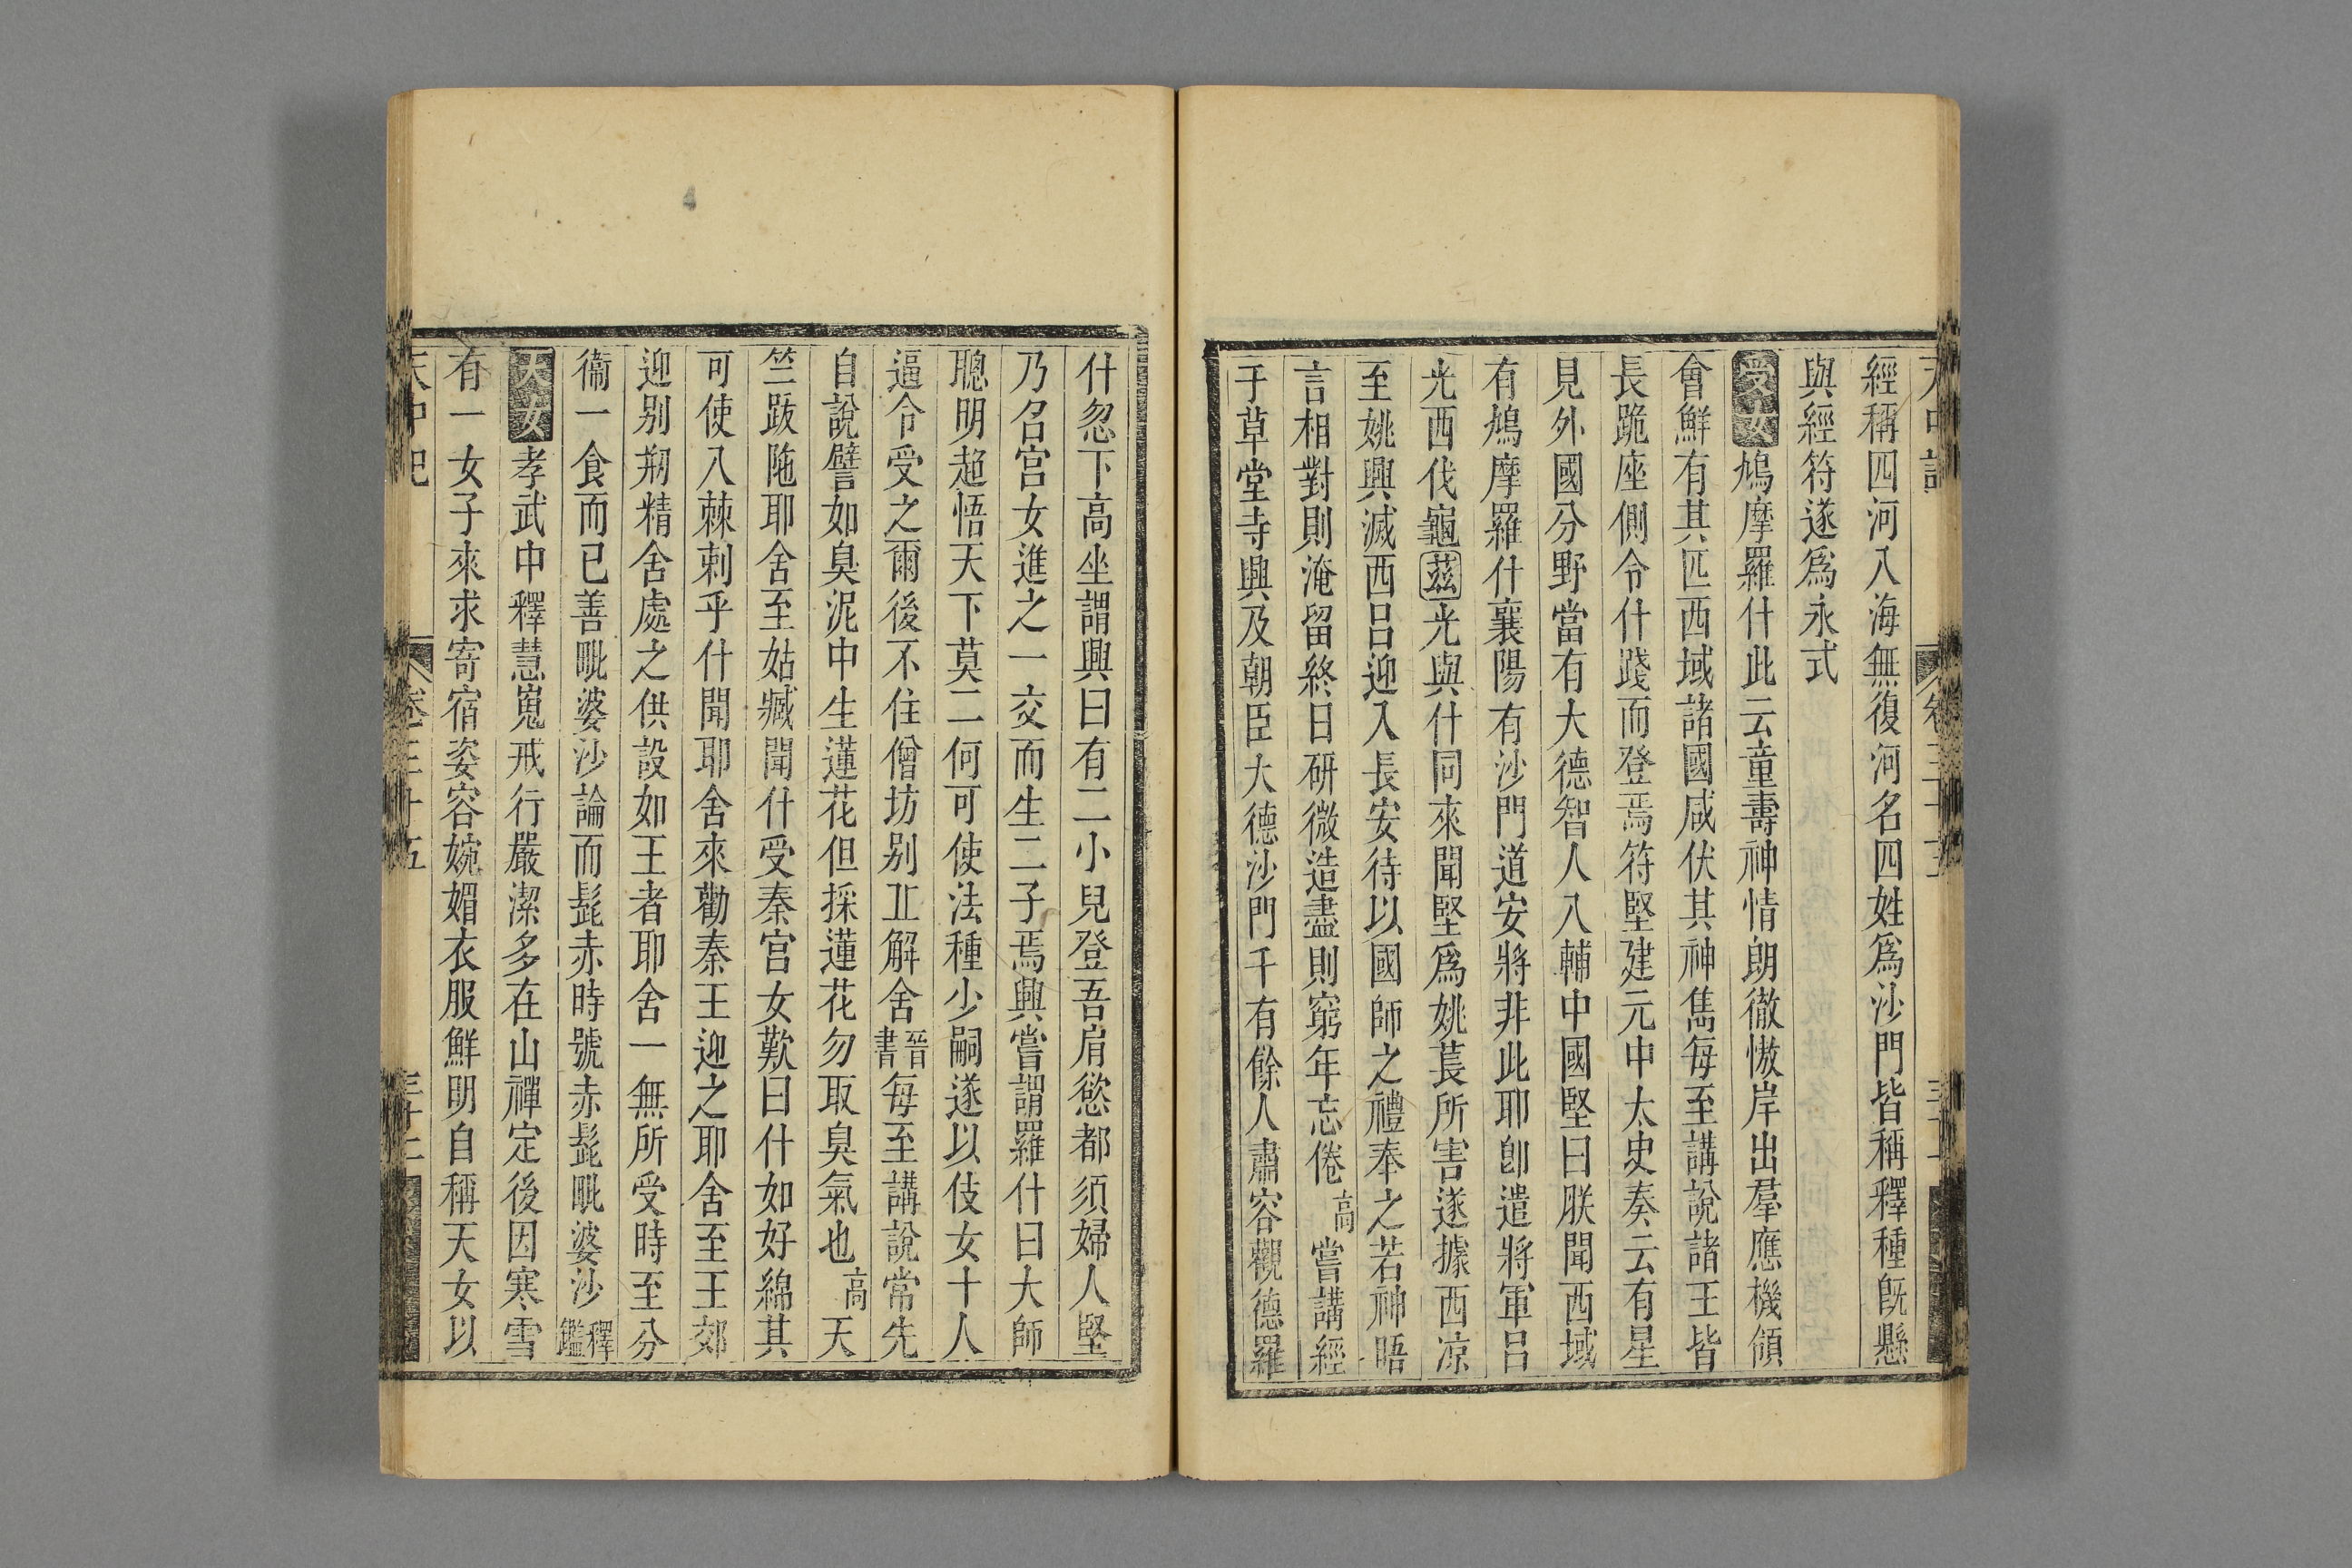 經稱四河入海無復河名四姓爲沙門皆稱釋種旣懸
與經符遂爲永式
受女鳩摩羅什此云童壽神情朗徹慠岸出羣應機領
會鮮有其匹西域諸國咸伏其神雋每至講說諸王皆
長跪座側令什踐而登焉符堅建元中太史奏云有星
見外國分野當有大德智人入輔中國堅曰朕聞西域
有鳩摩羅什襄陽有沙門道安將非此耶卽遣將軍呂
光西伐龜茲光與什同來聞堅爲姚萇所害遂據西凉
至姚興滅西呂迎入長安待以國師之禮奉之若神晤
言相對則淹留終日研微造盡則窮年忘倦高嘗講經
于草堂寺興及朝臣大德沙門千有餘人肅容觀德羅
什忽下高坐謂興曰有二小兒登吾肩慾都須婦人堅
乃名宮女進之一交而生二子焉興嘗謂羅什曰大師
聰明超悟天下莫二何可使法種少嗣遂以伎女十人
逼令受之爾後不住僧坊别立解舍晉書每至講說常先
自說譬如臭泥中生蓮花但採蓮花勿取臭氣也高天
竺跋陁耶舍至姑臧聞什受秦宮女歎曰什如好綿其
可使入棘刺乎什聞耶舍來勸秦王迎之耶舍至王郊
迎别剏精舍處之供設如王者耶舍一無所受時至分
衞一食而已善毗婆沙論而髭赤時號赤髭毗婆沙釋鑑
天女孝武中釋慧嵬戒行嚴潔多在山禪定後因寒雪
有一女子來求寄宿姿容婉媚衣服鮮明自稱天女以
天中記 卷三十五